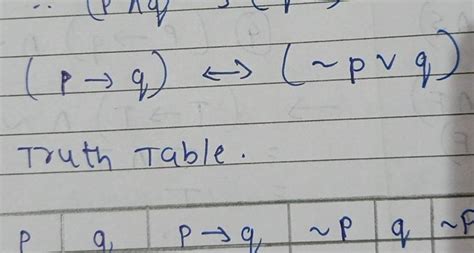 ∴ (p ∧ q
(p → q) ↔ (~p ∨ q)
Truth Table.
p q p → q ~p q ~p